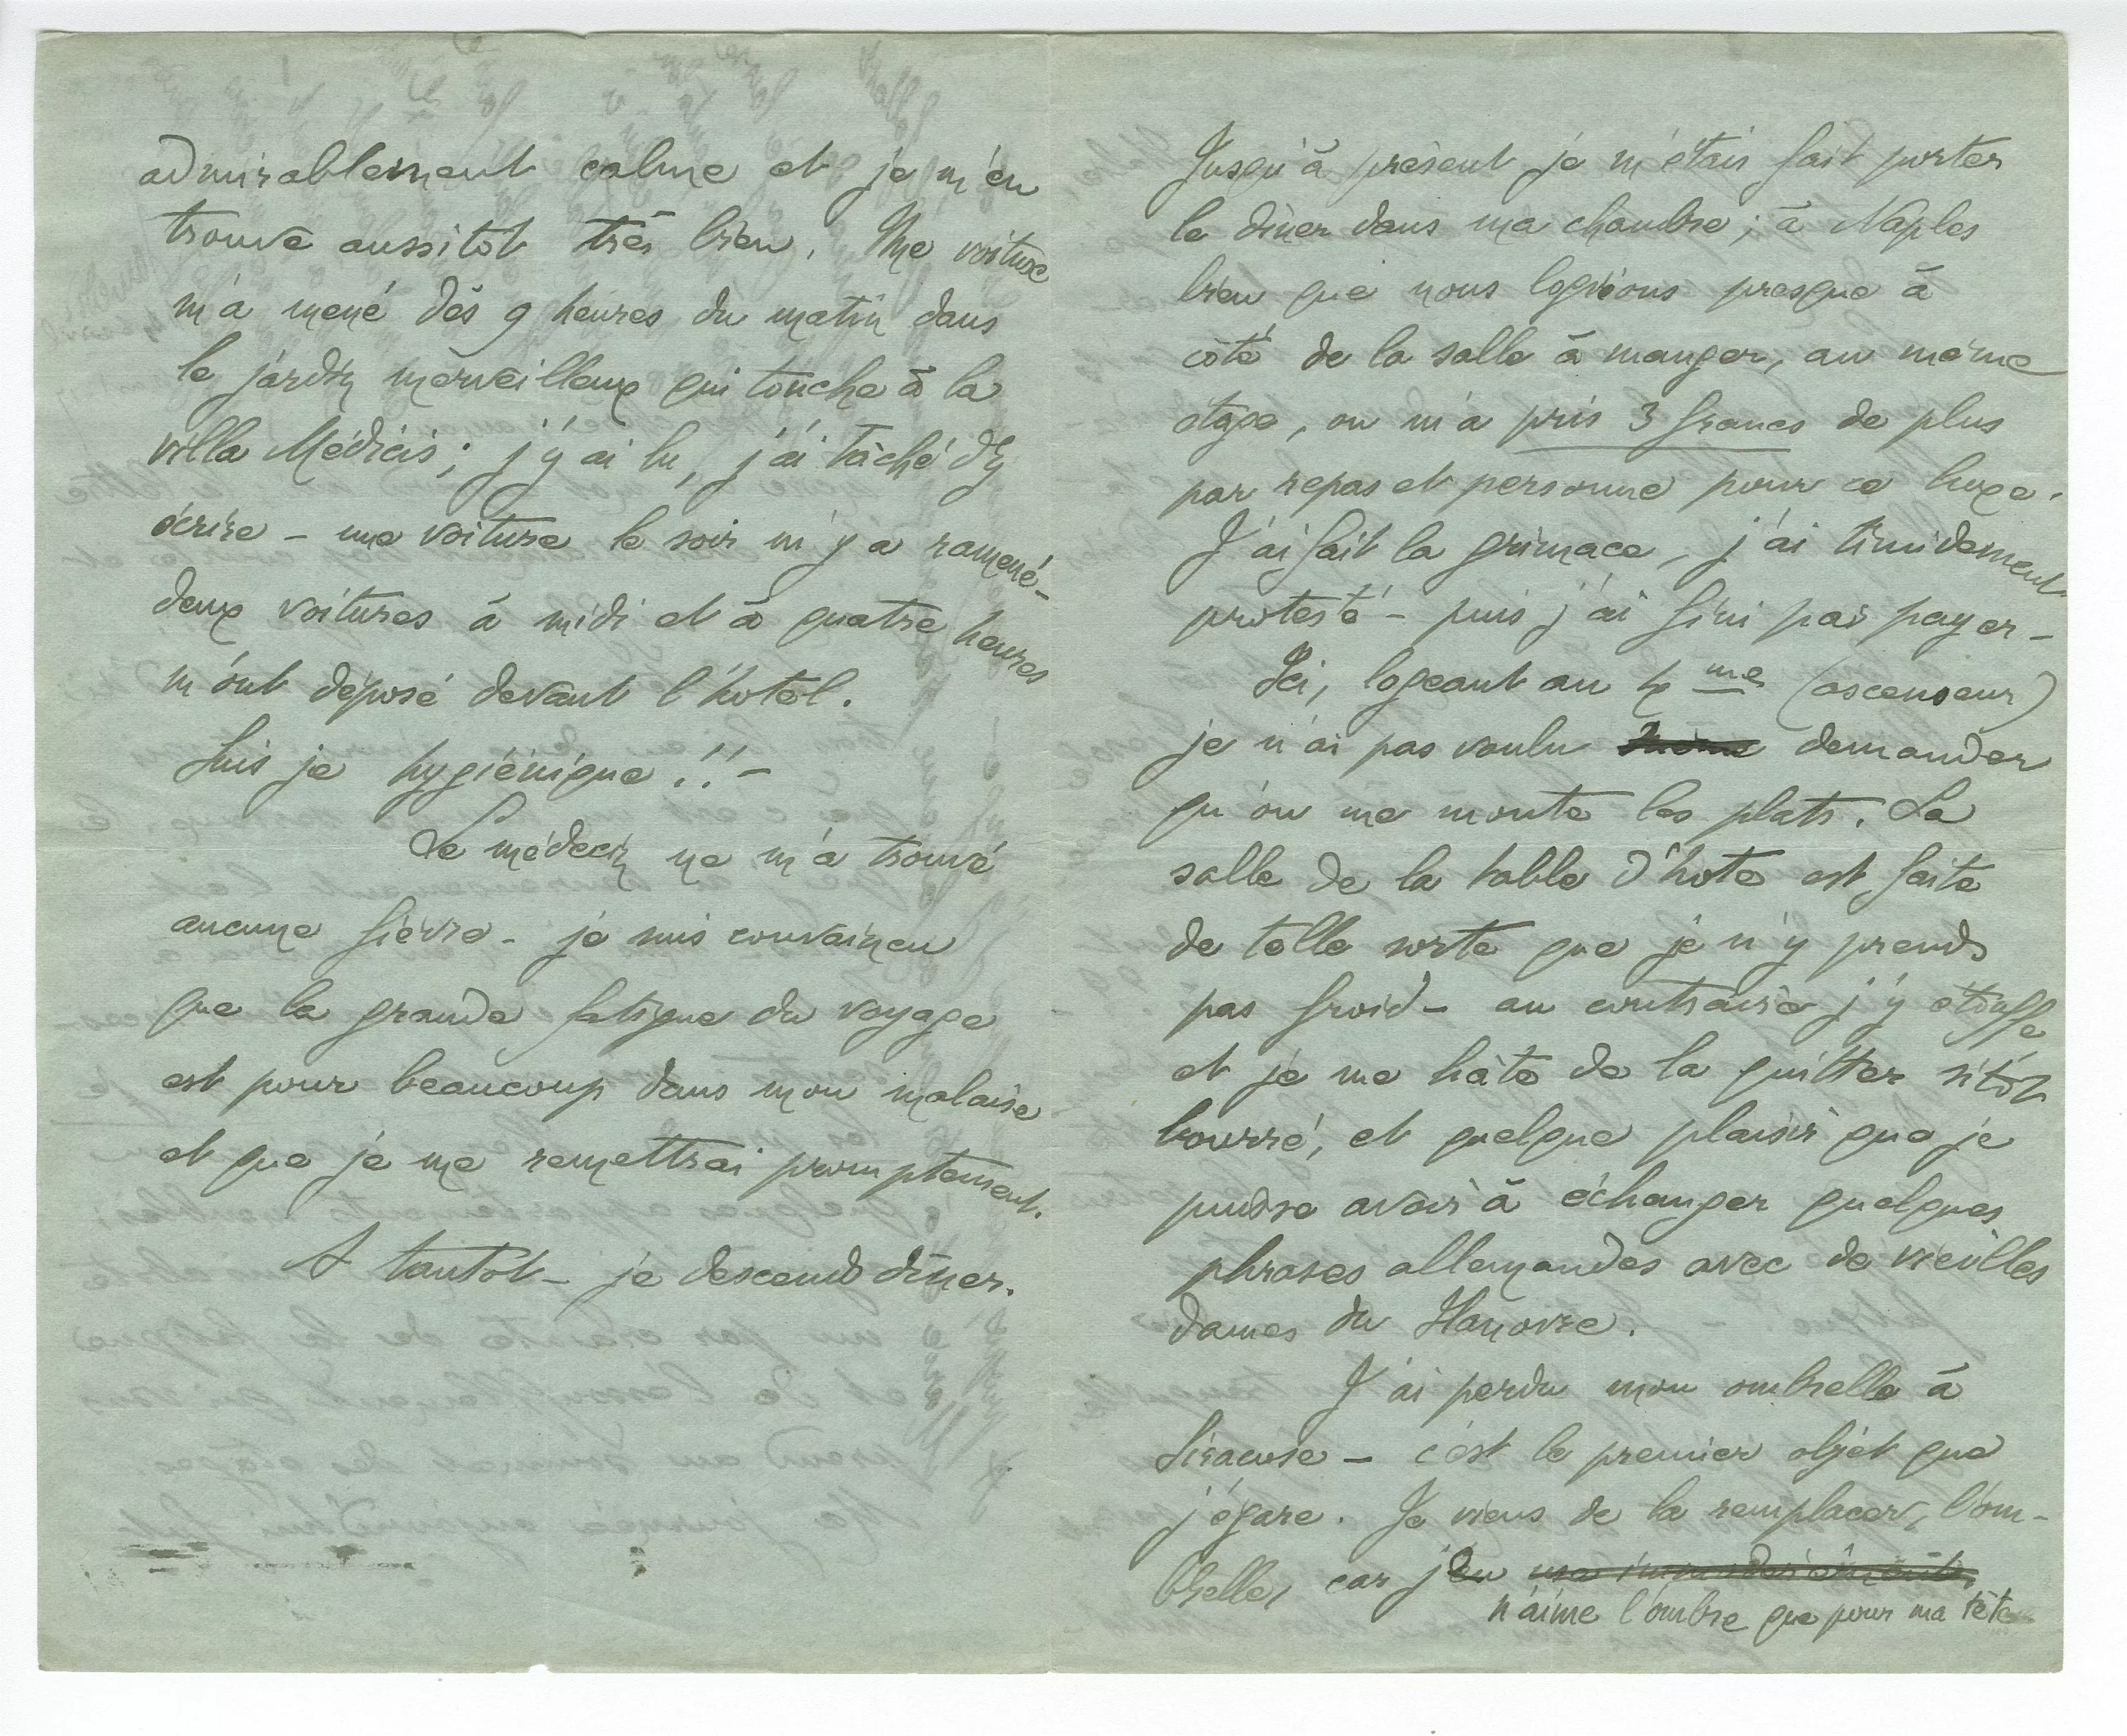 admirablement calme et je m'en
trouve aussitôt très bien. Une voiture
m'a mené dès 9 heures du matin dans
le jardin merveilleux qui touche à la
villa Médicis ; j'y ai lu, j'ai tâché d'y
écrire – une voiture le soir m'y a ramené –
deux voitures à midi et à quatre heures
m'ont déposé devant l'hotel.
Suis je hygiénique !! –
Le médecin ne m'a trouvé
aucune fièvre – je suis convaincu
que la grande fatigue du voyage
est pour beaucoup dans mon malaise
et que je me remettrai promptement.
A tantôt – je descends dîner.
Jusqu'à présent je m'étais fait porter
le dîner dans ma chambre ; à Naples
bien que nous logions presque à
côté de la salle à manger, au même
étage, on m'a pris 3 francs de plus
par repas et personne pour ce luxe.
J'ai fait la grimace, j'ai timidement
protesté – puis j'ai fini par payer –
Ici, logeant au 4me (ascenseur)
je n'ai pas voulu même demander
qu'on me monte les plats. La
salle de la table d'hote est faite
de telle sorte que je n'y prends
pas froid – au contraire j'y étouffe
et je me hâte de la quitter sitôt
bourré, et quelque plaisir que je
puisse avoir à échanger quelques
phrases allemandes avec de vieilles
dames du Hanovre.
J'ai perdu mon ombrelle à
Siracuse – c'est le premier objet que
j'égare. Je viens de la remplacer, l'om-
brelle, car je
n'aime l'ombre que pour ma tête